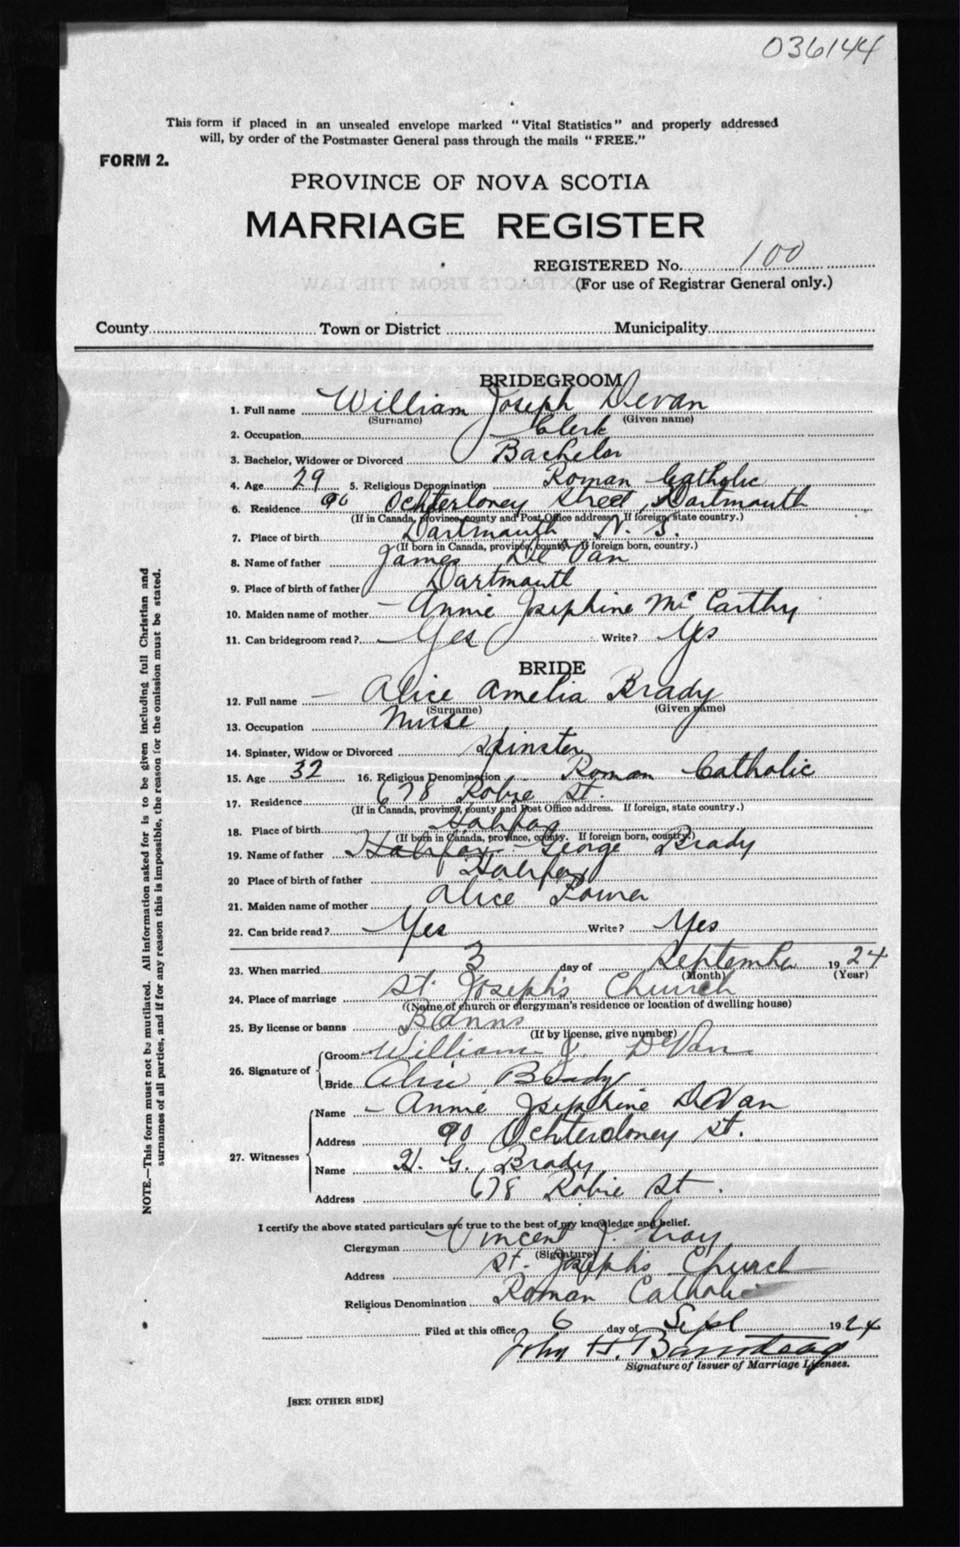 036144
This form if placed in an unsealed envelope marked "Vital Statistics" and properly addressed
will, by order of the Postmaster General pass through the mails "FREE."
FORM 2.
PROVINCE OF NOVA SCOTIA
MARRIAGE REGISTER
REGISTERED No. 100
(For use of Registrar General only.)
County Town or District Municipality
BRIDEGROOM
1. Full name William Joseph Devan
(Surname) (Given name)
2. Occupation Clerk
3. Bachelor, Widower or Divorced Bachelor
4. Age 29 5. Religious Denomination Roman Catholic
6. Residence 90 Ochterloney Street, Dartmouth
(If in Canada, province, county and Post Office address. If foreign, state country.)
7. Place of birth Dartmouth N. S.
(If born in Canada, province, county. If foreign born, country.)
8. Name of father James DeVan
9. Place of birth of father Dartmouth
10. Maiden name of mother Annie Josephine McCarthy
11. Can bridegroom read? Yes Write? Yes
BRIDE
12. Full name Alice Amelia Brady
(Surname) (Given name)
13. Occupation Nurse
14. Spinster, Widow or Divorced Spinster
15. Age 32 16. Religious Denomination Roman Catholic
17. Residence 678 Robie St.
(If in Canada, province, county and Post Office address. If foreign, state country.)
18. Place of birth Halifax
(If born in Canada, province, county. If foreign born, country.)
19. Name of father Halifax George Brady
20 Place of birth of father Halifax
21. Maiden name of mother Alice
22. Can bride read? Yes Write? Yes
23. When married 3 day of September 1924
(Month) (Year)
24. Place of marriage St. Joseph's Church
(Name of church or clergyman's residence or location of dwelling house)
25. By license or banns Banns
(If by license, give number)
26. Signature of Groom William J. DeVan
Bride Alice Brady
27. Witnesses Name Annie Josephine DeVan
Address 90 Ochterloney St.
Name H. G. Brady
Address 678 Robie St.
I certify the above stated particulars are true to the best of my knowledge and belief.
Clergyman Vincent J. Gray
(Signature)
Address St. Joseph's Church
Religious Denomination Roman Catholic
Filed at this office 6 day of Sept 1924
John H.
Signature of Issuer of Marriage Licenses.
[SEE OTHER SIDE]
NOTE.—This form must not be mutilated. All information asked for is to be given including full Christian and
surnames of all parties, and if for any reason this is impossible, the reason for the omission must be stated.